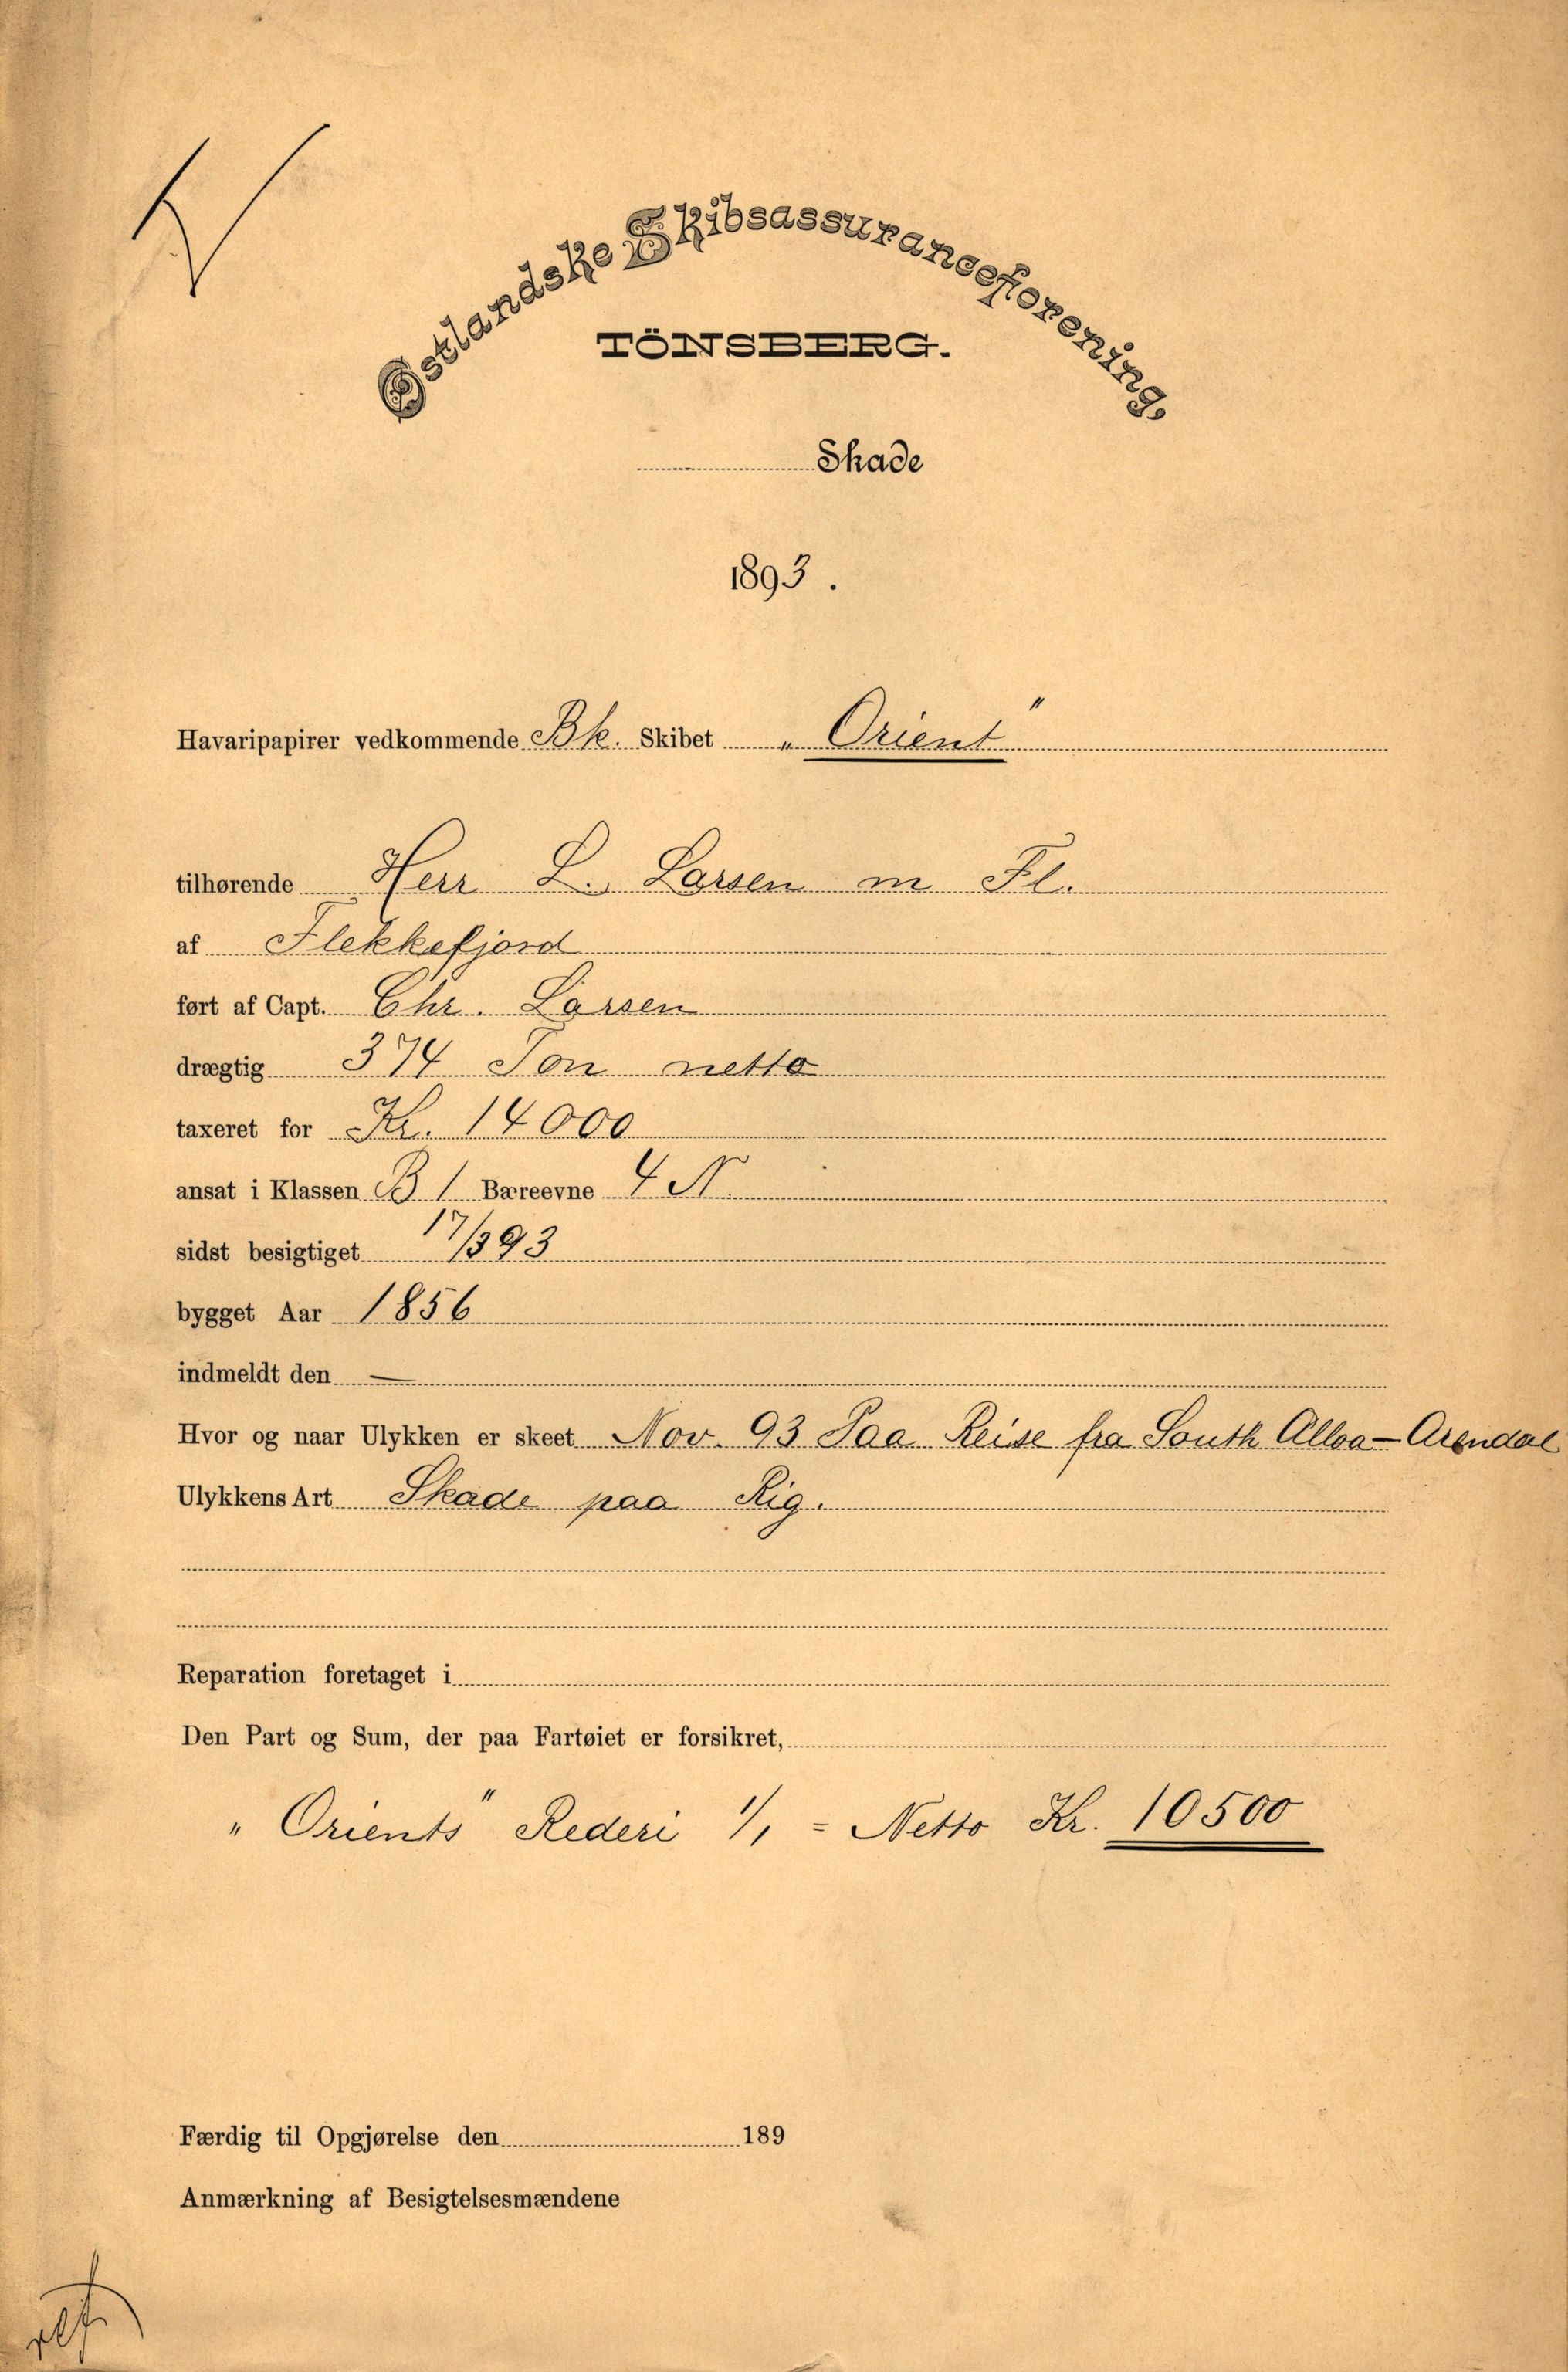 Østlandske Skibsassuranceforening,
TÖNSBERG.
Skade
1893.
Havaripapirer vedkommende Bk. Skibet „Orient"
tilhørende Herr L. Larsen m Fl.
af Flekkefjord
ført af Capt. Chr. Larsen
drægtig 374 Ton netto
taxeret for Kr. 14000
ansat i Klassen B 1 Bæreevne 4 N
sidst besigtiget 17/3 93
bygget Aar 1856
indmeldt den —
Hvor og naar Ulykken er skeet Nov. 93 Paa Reise fra South Alloa — Arendal
Ulykkens Art Skade paa Rig.
Reparation foretaget i
Den Part og Sum, der paa Fartøiet er forsikret,
„Orients" Rederi 1/1 = Netto Kr. 10500
Færdig til Opgjørelse den 189
Anmærkning af Besigtelsesmændene